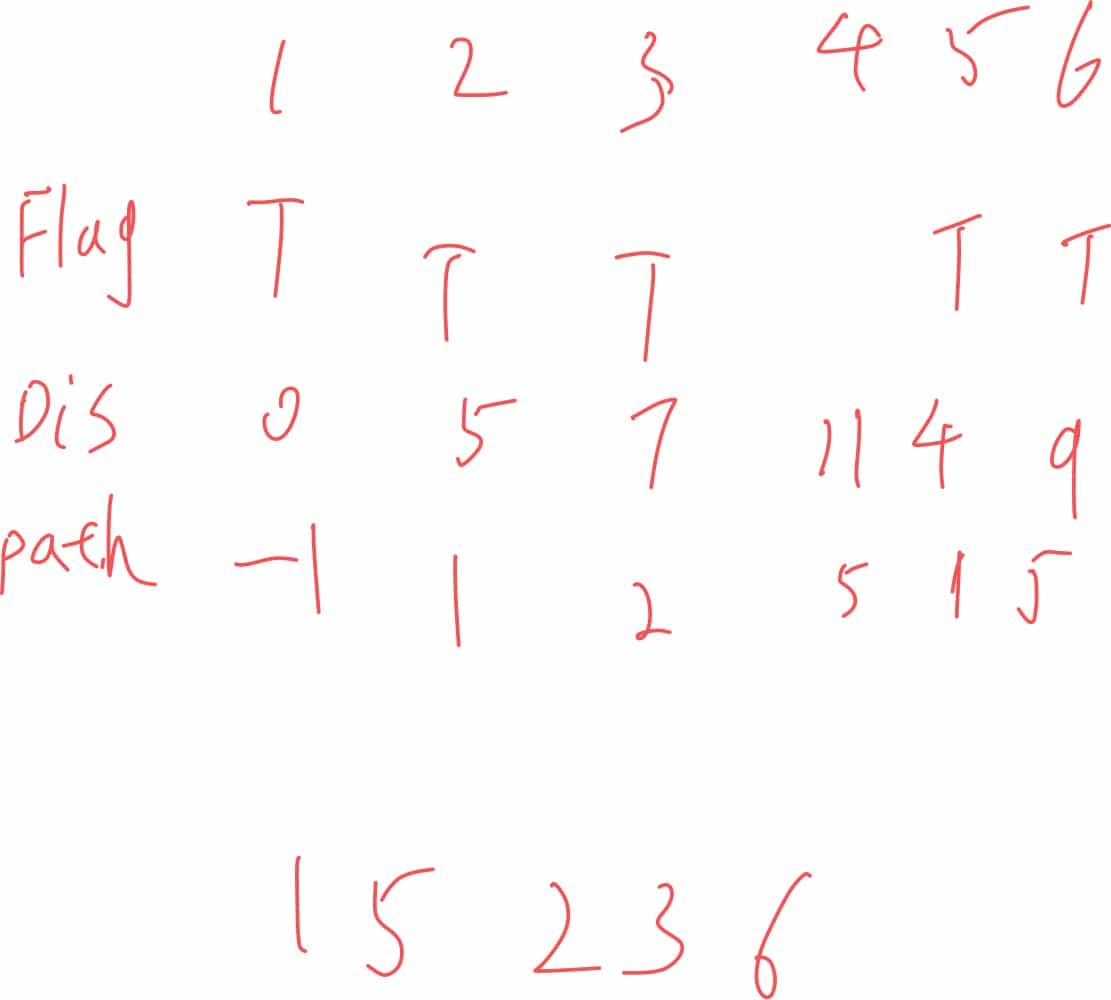 1 2 3 4 5 6
Flag T T T T T
Dis 0 5 7 11 4 9
path -1 1 2 5 1 5
1 5 2 3 6